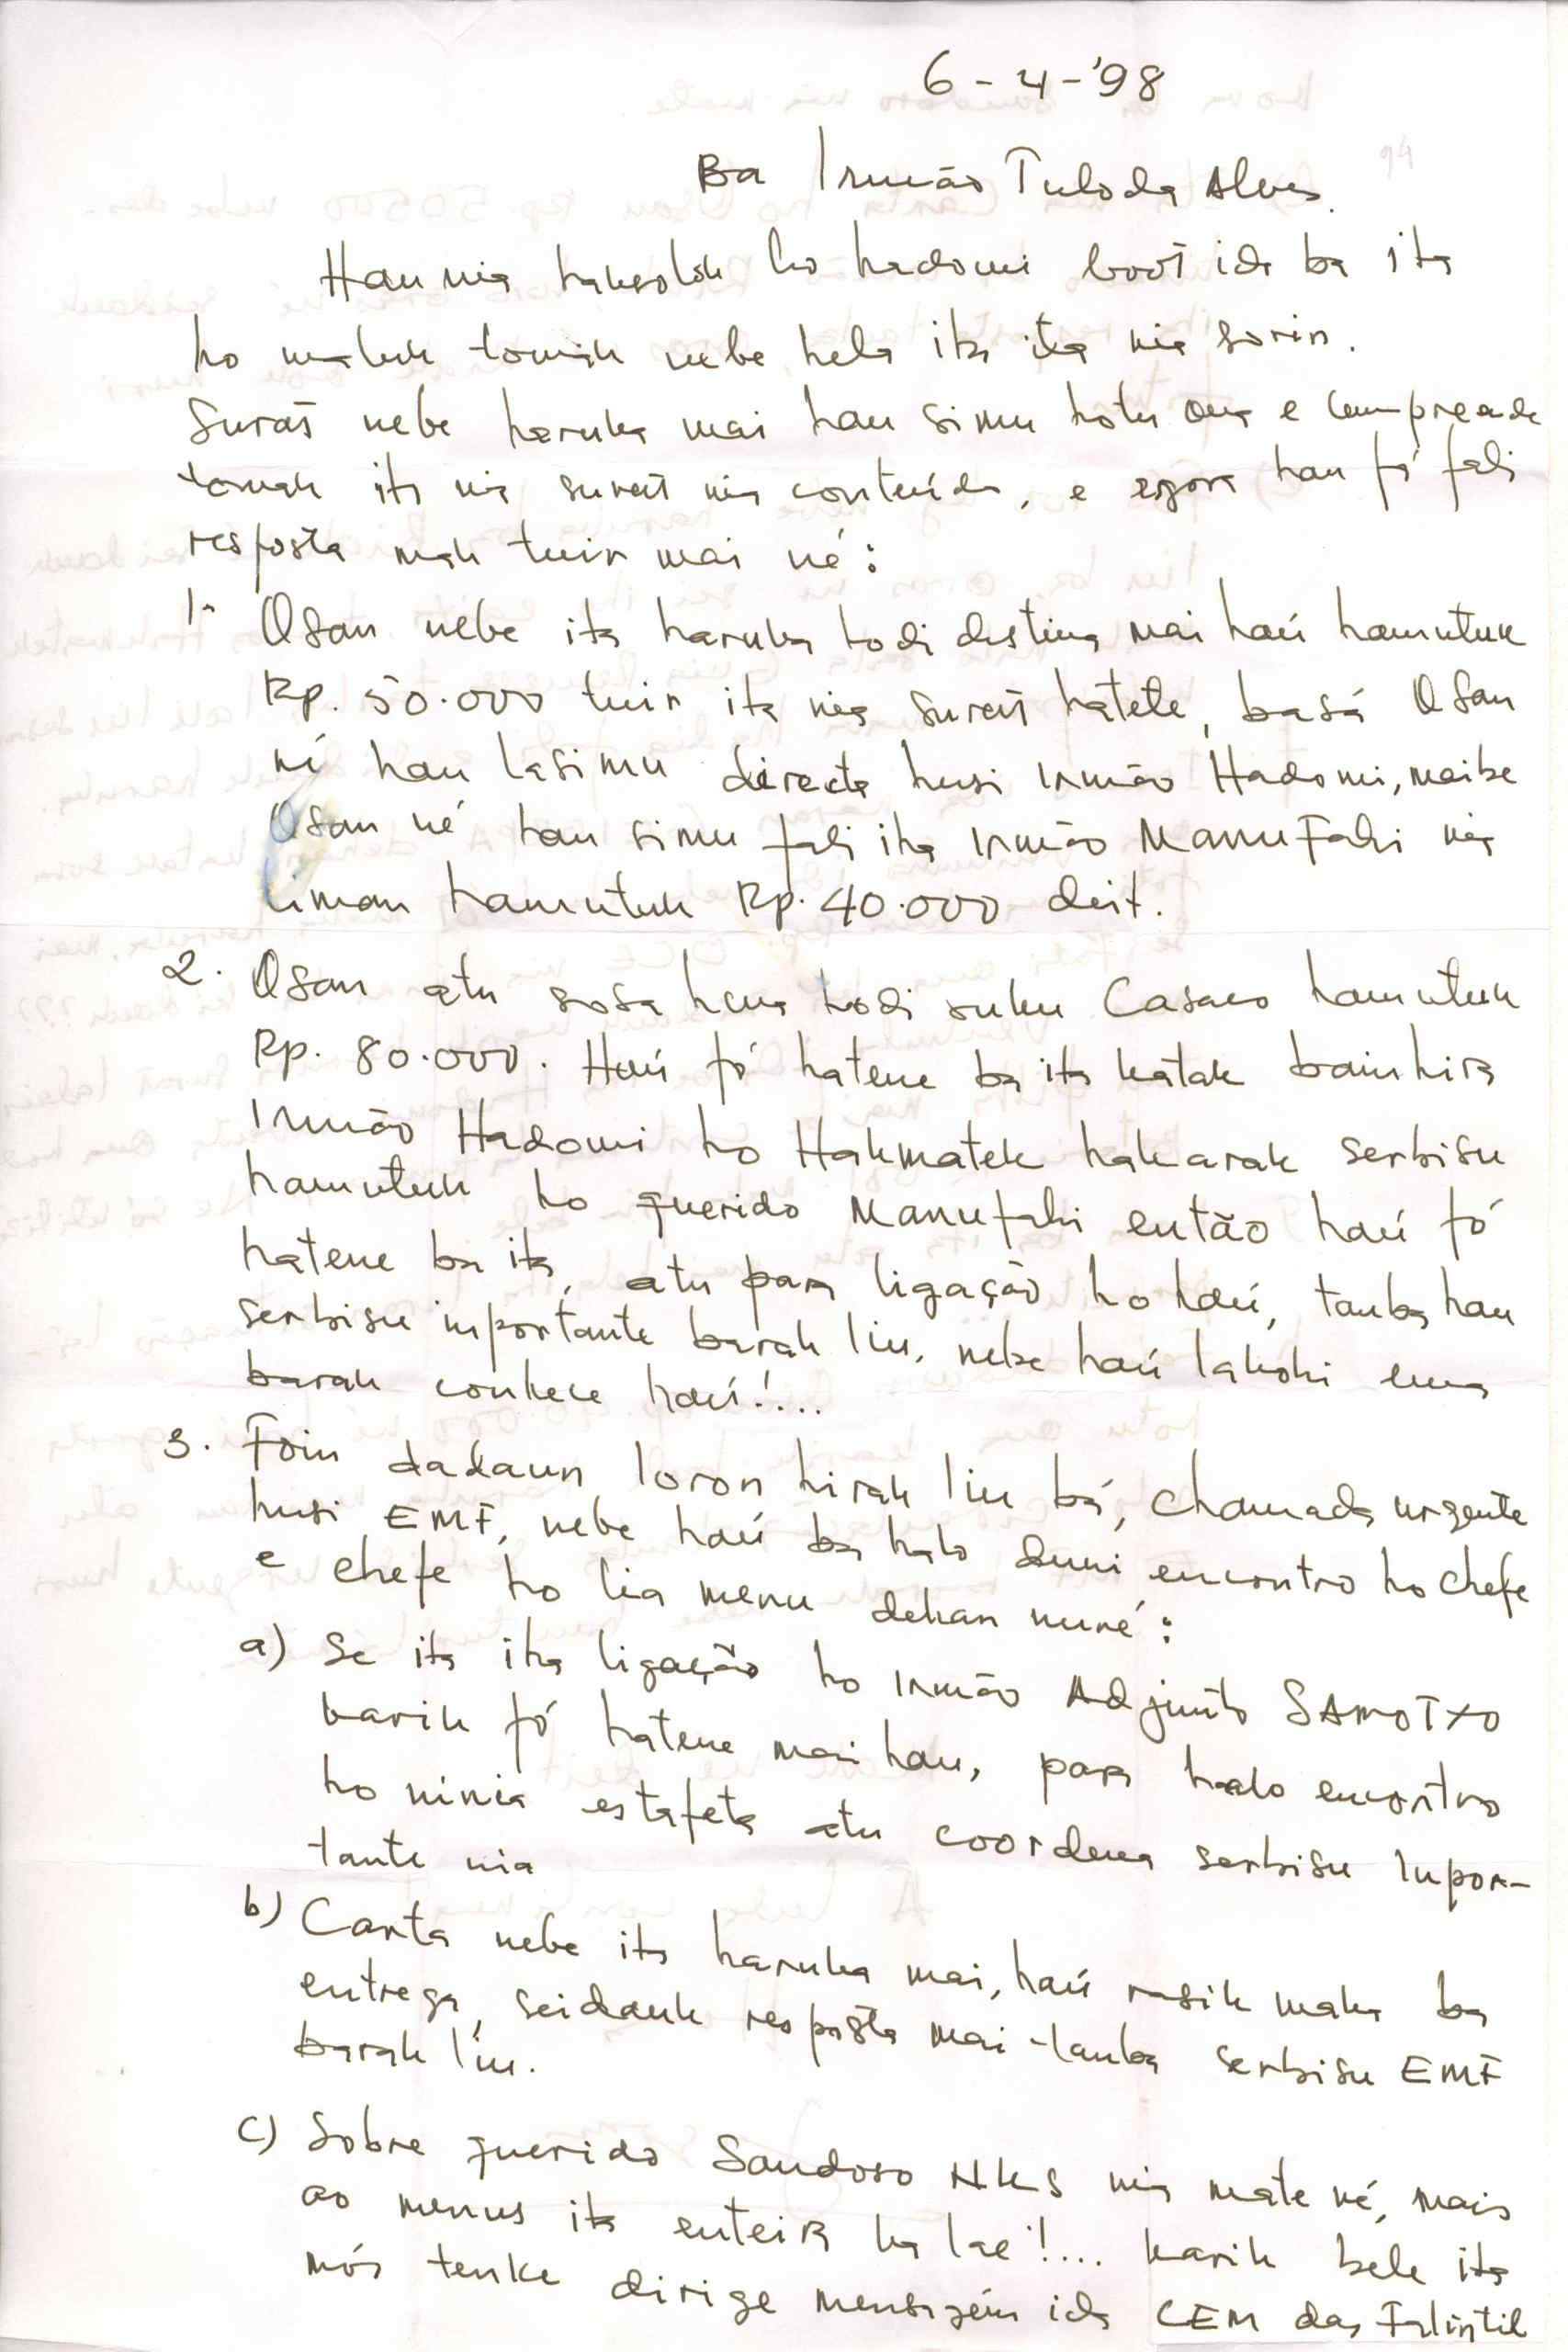 6 - 4 - '98
94
Ba Irmão Tuloda Alves.
Hau nia haksolok ho hadomi boot ida ba ita
ho maluk tomak nebe hela iha ita nia sorin.
Surat nebe haruka mai hau simu hotu ona e compreende
tomak ita nia surat nia conteúdo, e agora hau fó fali
resposta mak tuir mai né:
1. Osan nebe ita haruka hodi destina mai haú hamutuk
Rp. 50.000 tuir ita nia surat hatete, basá Osan
né hau lasimu directa husi irmão Hadomi, maibe
Osan né hau simu fali iha irmão Manufahi nia
liman hamutuk Rp. 40.000 deit.
2. Osan atu sosa hena hodi suku Casaco hamutuk
Rp. 80.000. Haú fó hatene ba ita katak bainhira
Irmão Hadomi ho Hakmatek hakarak serbisu
hamutuk ho querido Manufahi então haú fó
hatene ba ita, atu para ligação ho haú, tanba hau
serbisu inportante barak liu, nebe haú lakohi ema
barak conhece haú!...
3. Foin dadaun loron hirak liu bá, chamada urgente
husi EMF, nebe haú ba halo duni encontro ho chefe
e chefe ho lia menu dehan nuné:
a) Se ita iha ligação ho irmão Adjunto SAMOTXO
karik fó hatene mai hau, para halo encontro
ho ninia estafeta atu coordena serbisu Inpor-
tante nia
b) Carta nebe ita haruka mai, haú rasik maka ba
entrega, seidauk resposta mai tanba serbisu EMF
barak liu.
c) Sobre querido Saudoso NKS nia mate né, mais
ao menus ita enteira ka lae!... karik bele ita
mós tenke dirige mensagém ida CEM das Falintil